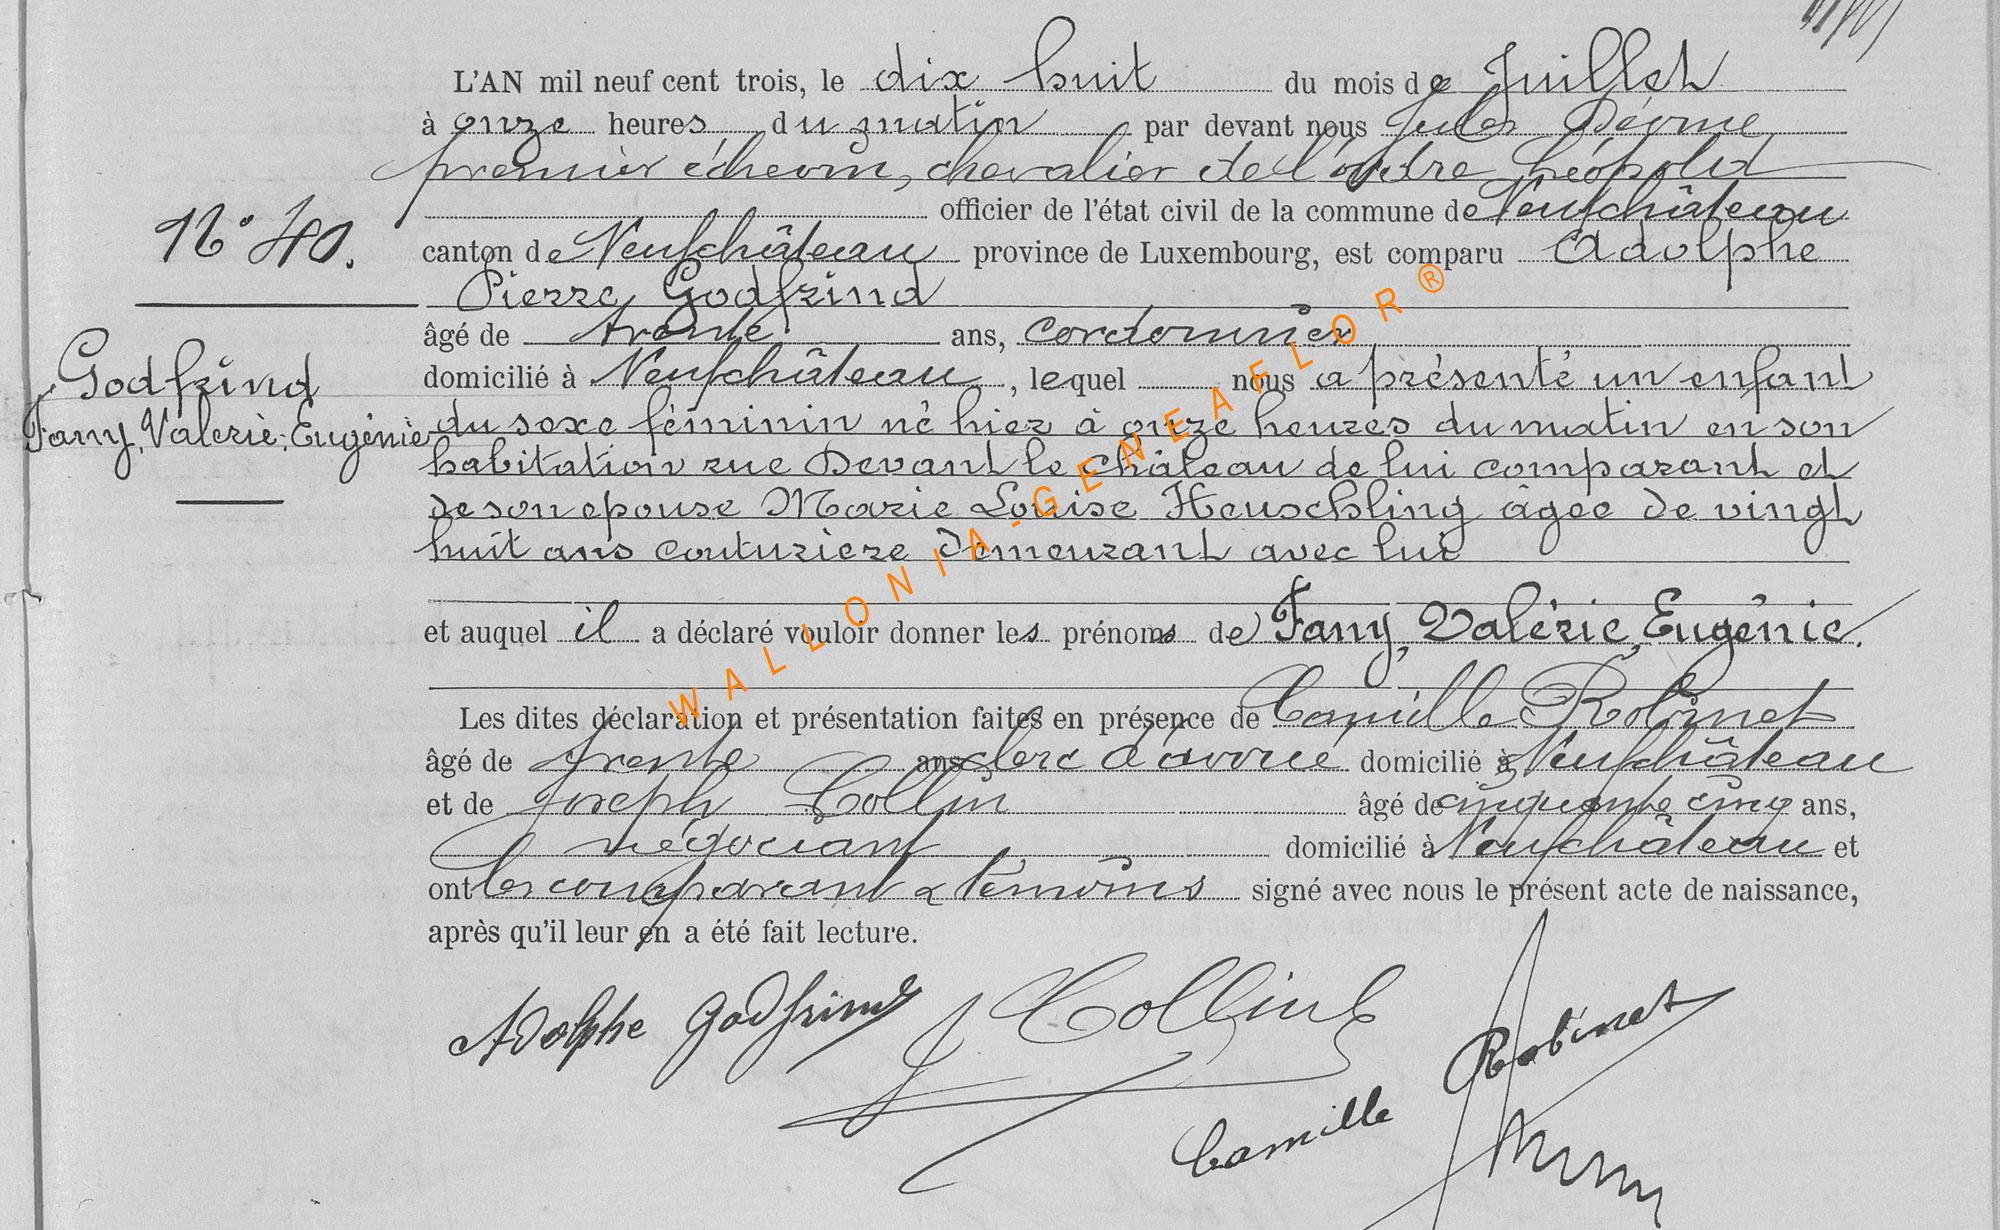 L'AN mil neuf cent trois, le dix huit du mois de Juillet
à onze heures du matin par devant nous Jules
premier échevin, chevalier de l'ordre Léopold
officier de l'état civil de la commune de Neufchâteau
N° 40.
canton de Neufchâteau province de Luxembourg, est comparu Adolphe
Pierre Godfrind
âgé de trente ans, cordonnier
Godfrind
Fany, Valerie, Eugénie
domicilié à Neufchâteau, lequel nous a présenté un enfant
du sexe féminin né hier à onze heures du matin en son
habitation rue Devant le Château de lui comparant et
de son epouse Marie Louise Heuschling âgee de vingt
huit ans couturiere demeurant avec lui
et auquel il a déclaré vouloir donner les prénoms de Fany, Valérie, Eugénie.
Les dites déclaration et présentation faites en présence de Camille Robinet
âgé de trente ans clerc d'avoué domicilié à Neufchâteau
et de Joseph Collin âgé de cinquante cinq ans,
négociant domicilié à Neufchâteau et
ont les comparant & témoins signé avec nous le présent acte de naissance,
après qu'il leur en a été fait lecture.
Adolphe Godfrind J Collin
Camille Robinet
WALLONIA-GENEAFLOR®